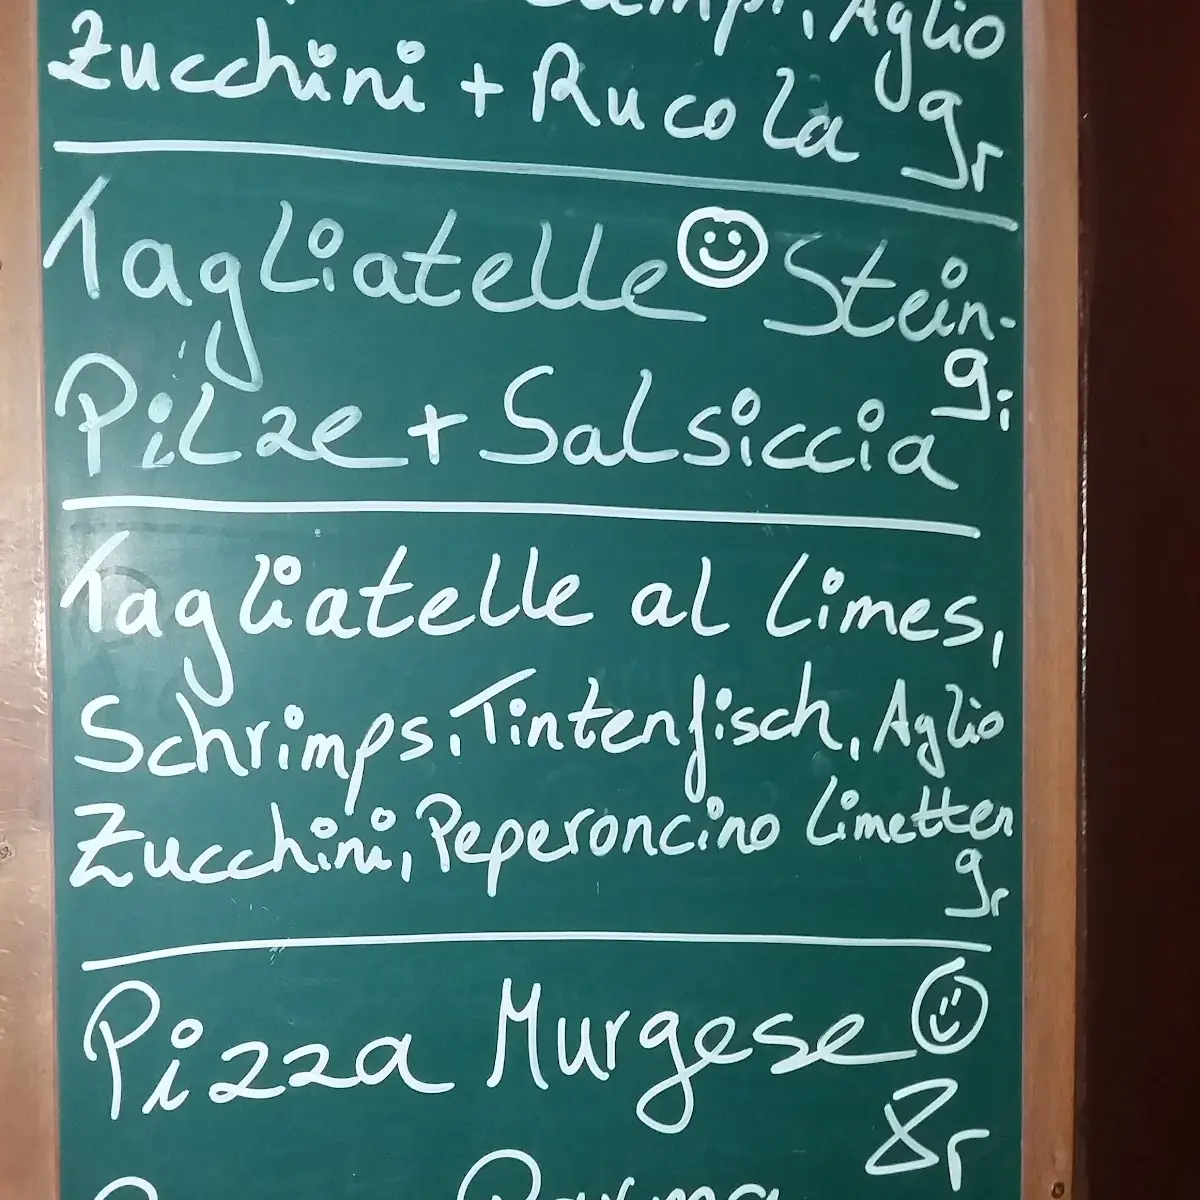 Aglio
Zucchini + Rucola
9,-
Tagliatelle Stein-
Pilze + Salsiccia
9,-
Tagliatelle al Limes,
Schrimps, Tintenfisch, Aglio
Zucchini, Peperoncino Limetten
9,-
Pizza Murgese
8,-